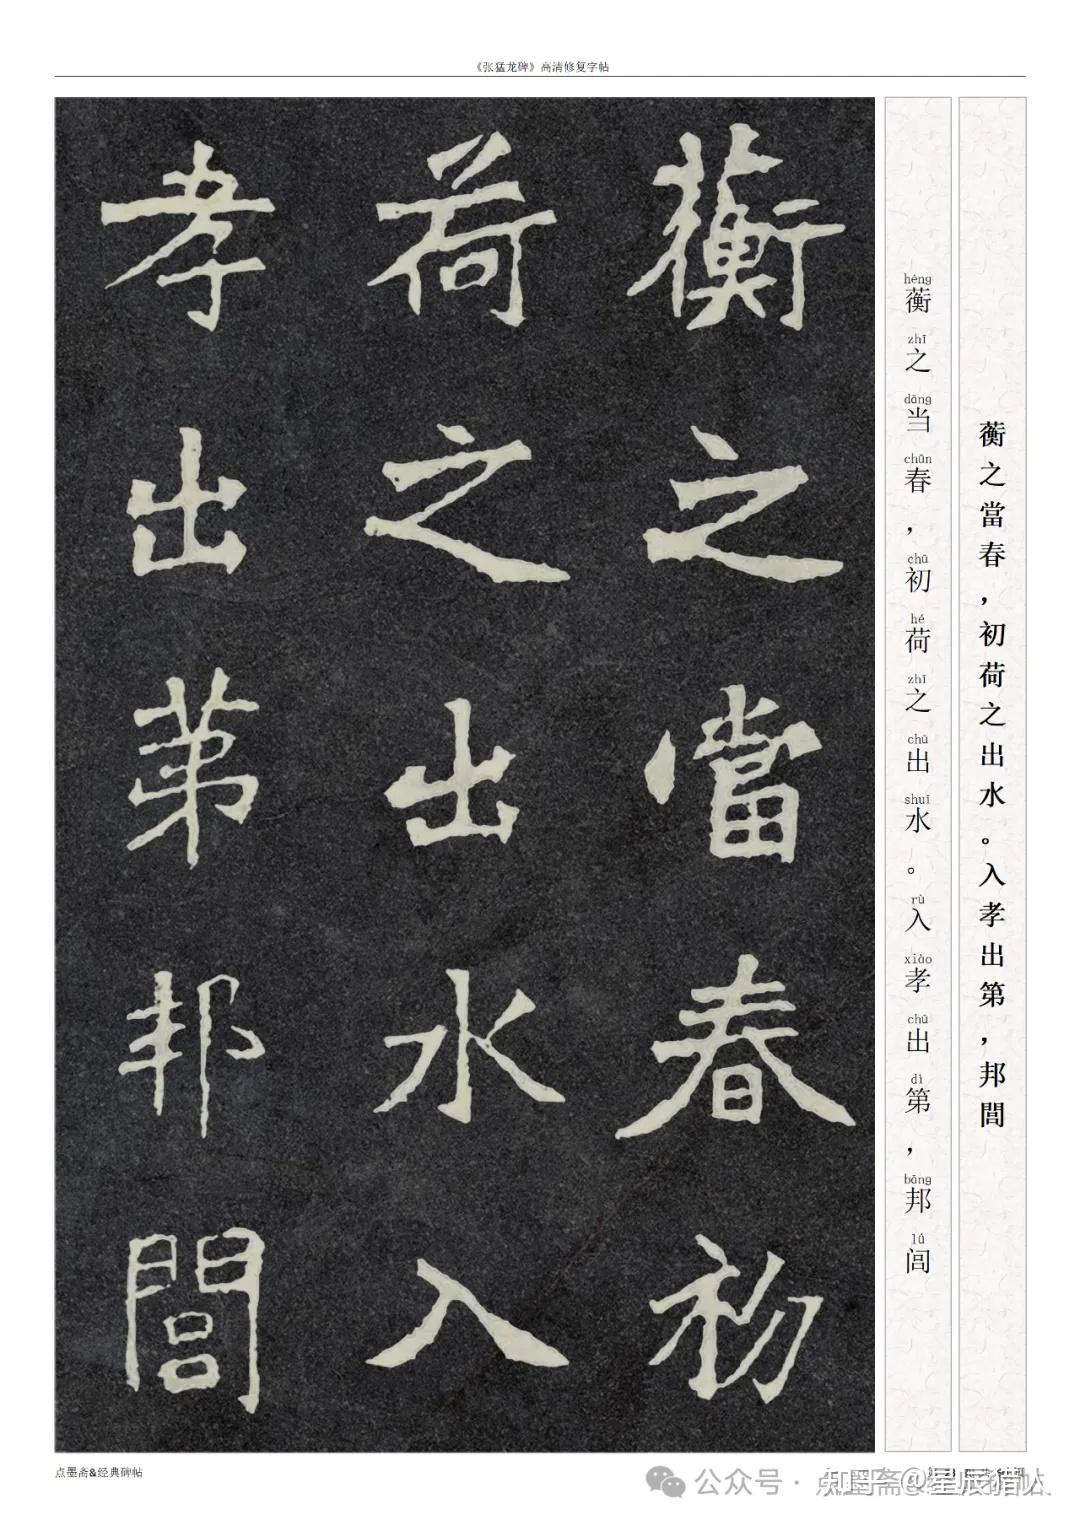 《张猛龙碑》高清修复字帖
蘅之當春初
荷之出水入
孝出第邦閭
蘅之當春，初荷之出水。入孝出第，邦閭
héng zhī dāng chūn chū hé zhī chū shuǐ rù xiào chū dì bāng lǘ
蘅之当春，初荷之出水。入孝出第，邦闾
点墨斋&经典碑帖
公众号·点墨斋
知乎 @星辰猎帖